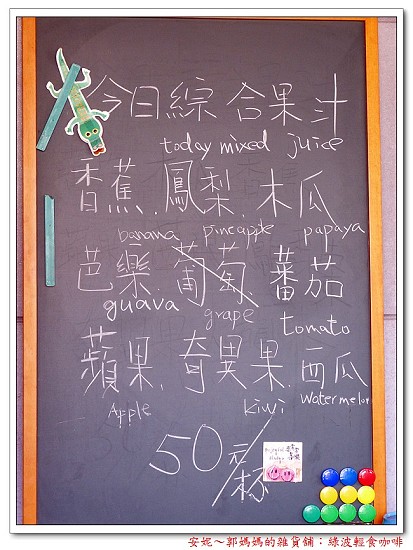 今日綜合果汁
today mixed juice
香蕉.鳳梨.木瓜
banana pineapple papaya
芭樂.葡萄 蕃茄
guava grape tomato
蘋果.奇異果.西瓜
Apple kiwi Watermelon
50元/杯
安妮~郭媽媽的雜貨舖：綠波輕食咖啡